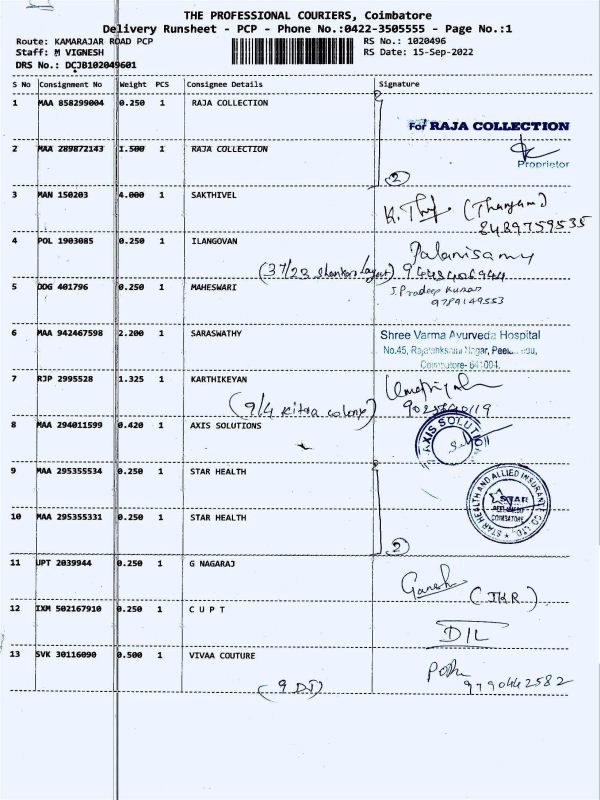 THE PROFESSIONAL COURIERS, Coimbatore
Delivery Runsheet - PCP - Phone No.:0422-3505555 - Page No.:1
Route: KAMARAJAR ROAD PCP
RS No.: 1020496
Staff: M VIGNESH
RS Date: 15-Sep-2022
DRS No.: DCJB102049601
S No Consignment No Weight PCS Consignee Details Signature
1 MAA 858299004 0.250 1 RAJA COLLECTION
For RAJA COLLECTION
2 MAA 289872143 1.500 1 RAJA COLLECTION
Proprietor
2
3 MAN 150203 4.000 1 SAKTHIVEL
K. (Thangam)
8489759535
4 POL 1903085 0.250 1 ILANGOVAN
Palanisamy
(37/23 Layout)
5 DDG 401796 0.250 1 MAHESWARI
J. Pradeep Kumar
9789149553
6 MAA 942467598 2.200 1 SARASWATHY
Shree Varma Ayurveda Hospital
No.45, Nagar,
Coimbatore- 641004.
7 RJP 2995528 1.325 1 KARTHIKEYAN
(9/4 colony)
8 MAA 294011599 0.420 1 AXIS SOLUTIONS
AXIS SOLUTION
9 MAA 295355534 0.250 1 STAR HEALTH
STAR HEALTH AND ALLIED INSURANCE CO. LTD.
STAR
COIMBATORE
10 MAA 295355331 0.250 1 STAR HEALTH
2
11 JPT 2039944 0.250 1 G NAGARAJ
Ganesh
(JKR)
12 IXM 502167910 0.250 1 C U P T
D/L
13 SVK 30116090 0.500 1 VIVAA COUTURE
9790442582
(9 DJ)